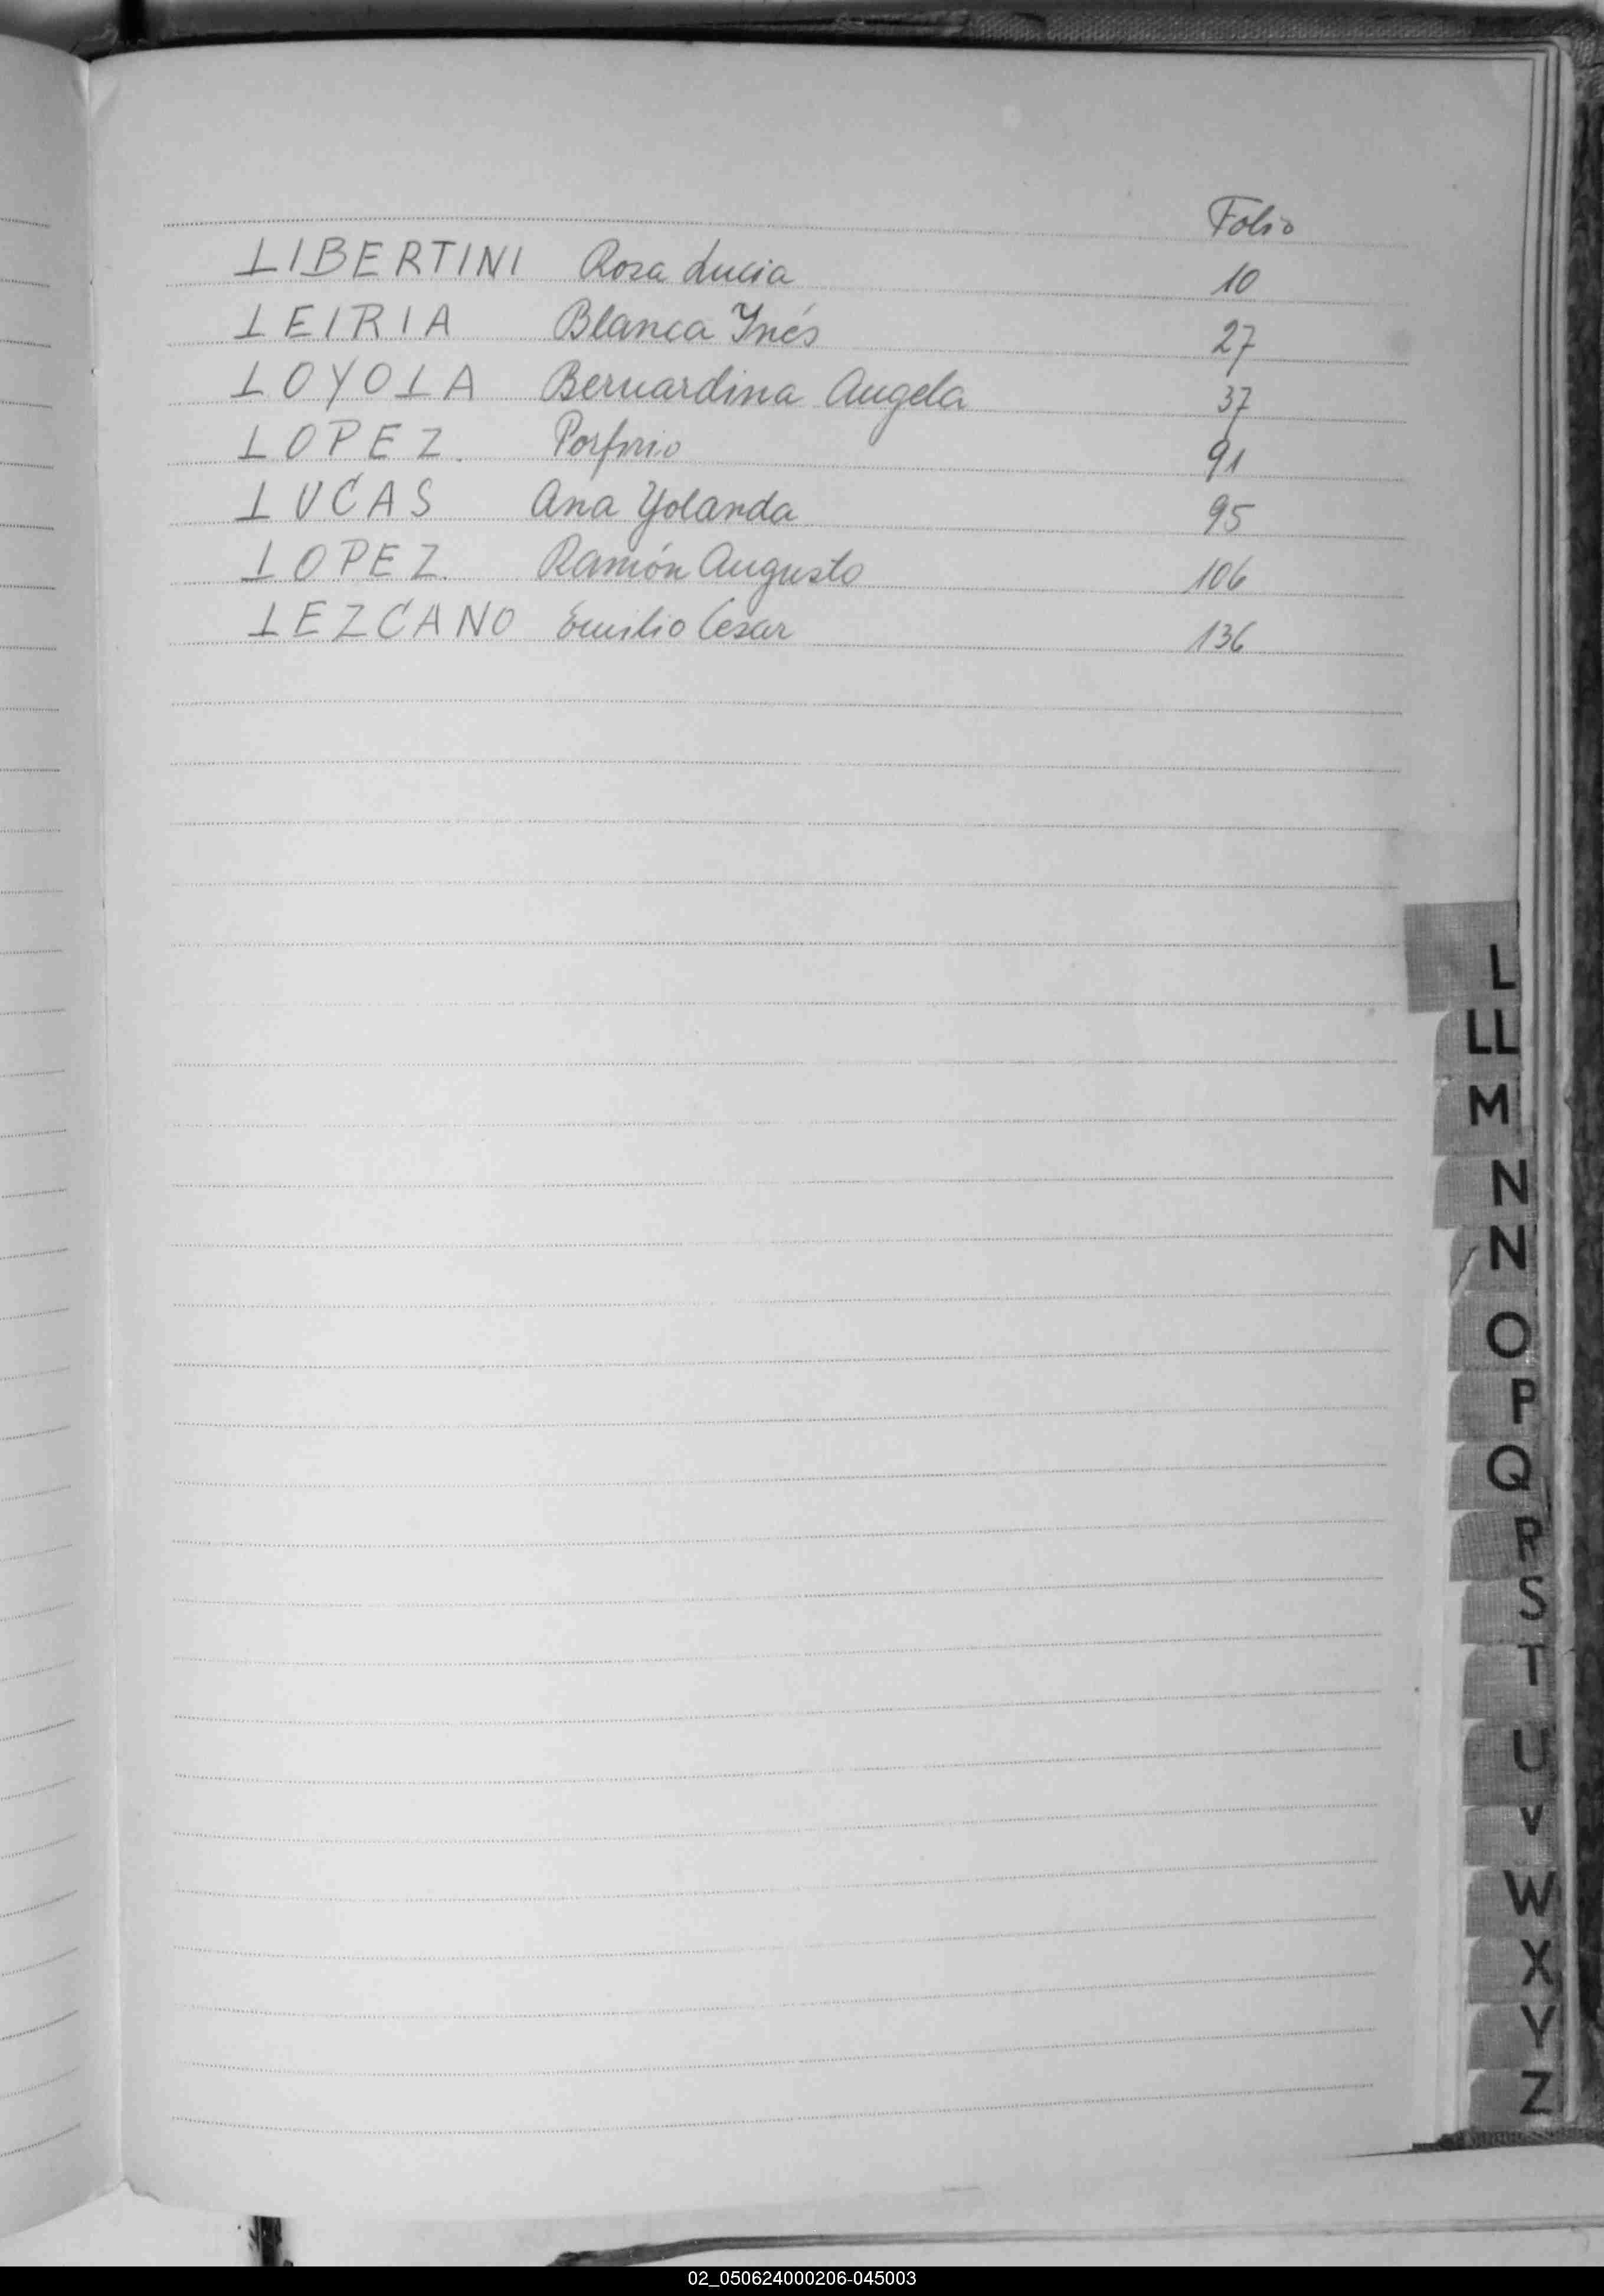 Folio
LIBERTINI Rosa Lucia 10
LEIRIA Blanca Ynés 27
LOYOLA Bernardina Angela 37
LOPEZ. Porfirio 91
LUCAS Ana Yolanda 95
LOPEZ. Ramón Augusto 106
LEZCANO Emilio Cesar 136
L
LL
M
N
N
O
P
Q
R
S
T
U
V
W
X
Y
Z
02_050624000206-045003